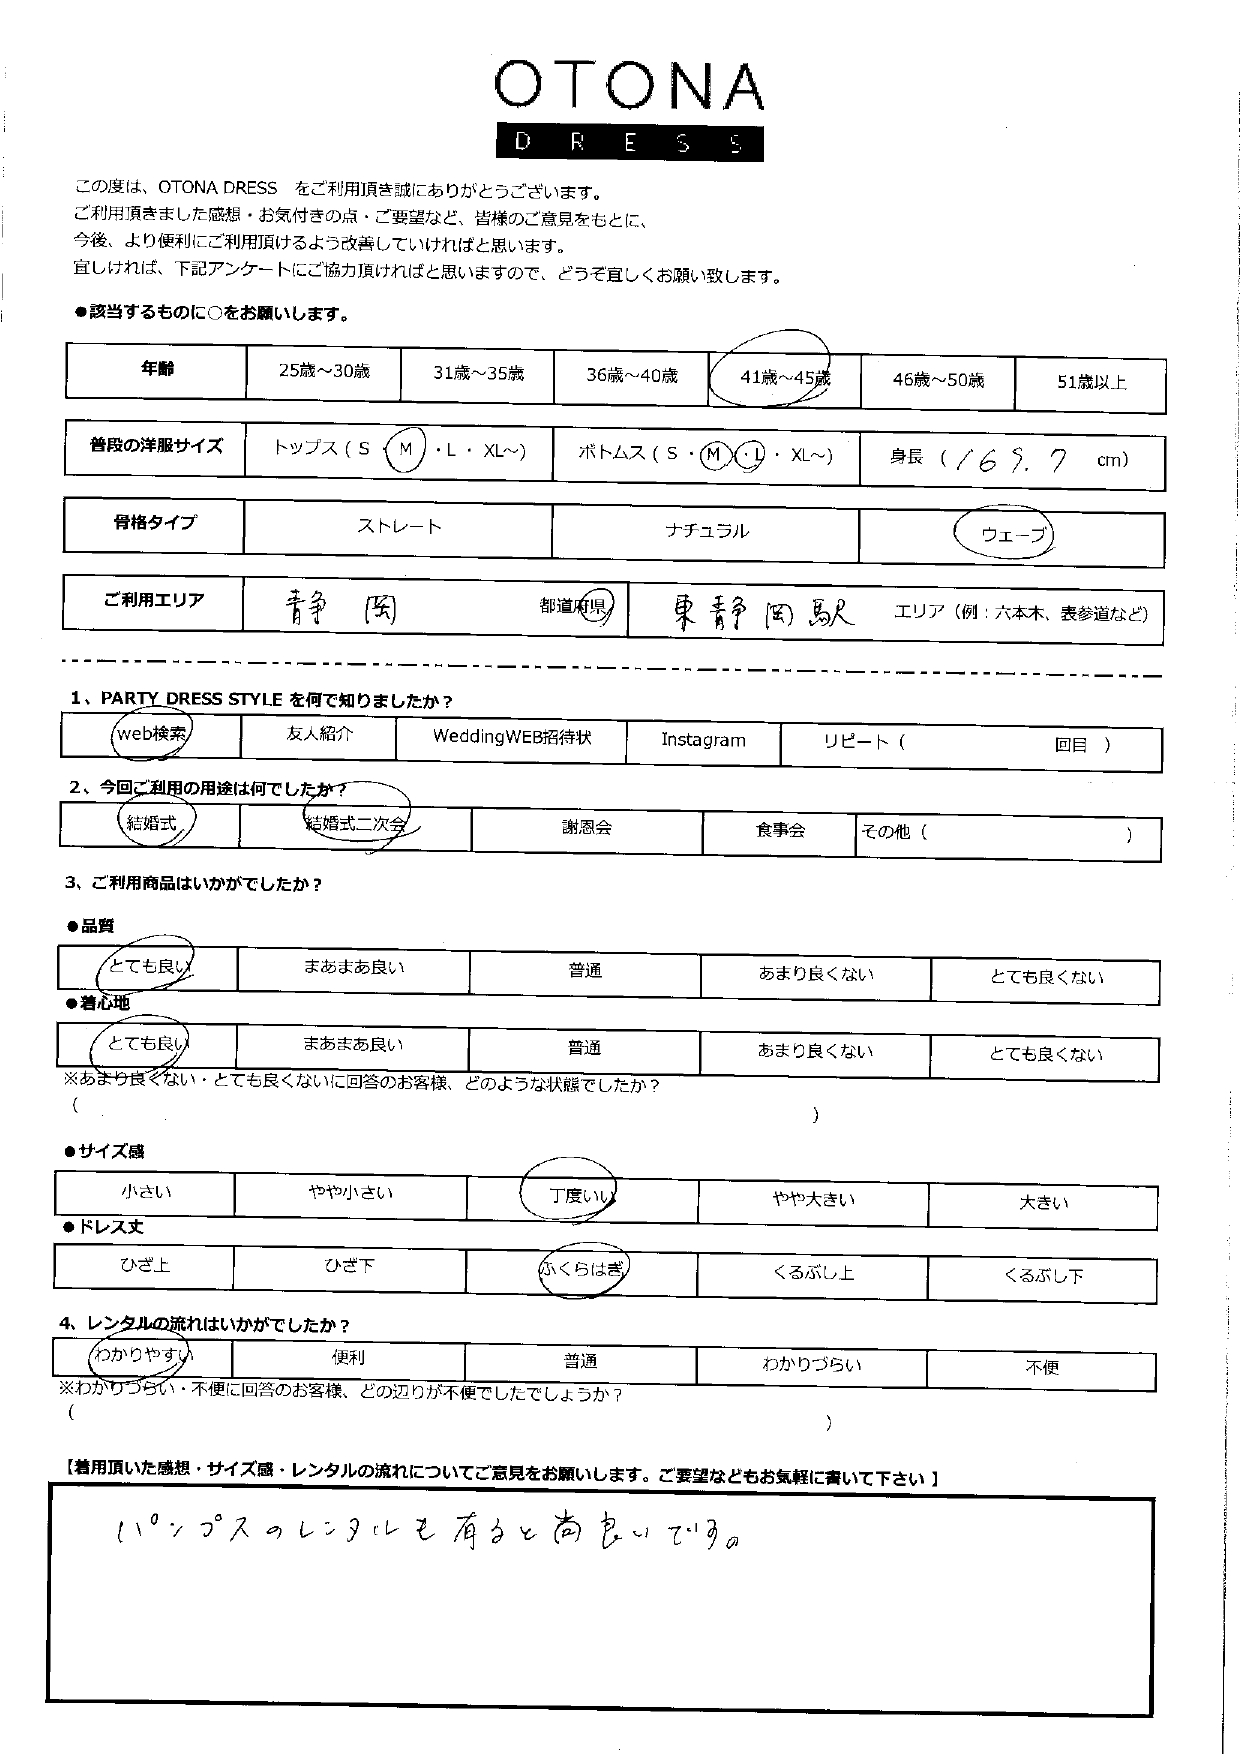 OTONA
DRESS
この度は、OTONA DRESS　をご利用頂き誠にありがとうございます。
ご利用頂きました感想・お気付きの点・ご要望など、皆様のご意見をもとに、
今後、より便利にご利用頂けるよう改善していければと思います。
宜しければ、下記アンケートにご協力頂ければと思いますので、どうぞ宜しくお願い致します。
●該当するものに○をお願いします。
年齢 25歳～30歳 31歳～35歳 36歳～40歳 41歳～45歳 46歳～50歳 51歳以上
普段の洋服サイズ トップス（ S ・ M ・ L ・ XL～） ボトムス（ S ・ M ・ L ・ XL～） 身長（ 165.7 cm）
骨格タイプ ストレート ナチュラル ウェーブ
ご利用エリア 静岡 都道府県 東静岡駅 エリア（例：六本木、表参道など）
1、PARTY DRESS STYLE を何で知りましたか？
web検索 友人紹介 WeddingWEB招待状 Instagram リピート（ 回目 ）
2、今回ご利用の用途は何でしたか？
結婚式 結婚式二次会 謝恩会 食事会 その他（ ）
3、ご利用商品はいかがでしたか？
●品質
とても良い まあまあ良い 普通 あまり良くない とても良くない
●着心地
とても良い まあまあ良い 普通 あまり良くない とても良くない
※あまり良くない・とても良くないに回答のお客様、どのような状態でしたか？
（ ）
●サイズ感
小さい やや小さい 丁度いい やや大きい 大きい
●ドレス丈
ひざ上 ひざ下 ふくらはぎ くるぶし上 くるぶし下
4、レンタルの流れはいかがでしたか？
わかりやすい 便利 普通 わかりづらい 不便
※わかりづらい・不便に回答のお客様、どの辺りが不便でしたでしょうか？
（ ）
【着用頂いた感想・サイズ感・レンタルの流れについてご意見をお願いします。ご要望などもお気軽に書いて下さい 】
パンプスのレンタルも有ると尚良いです。